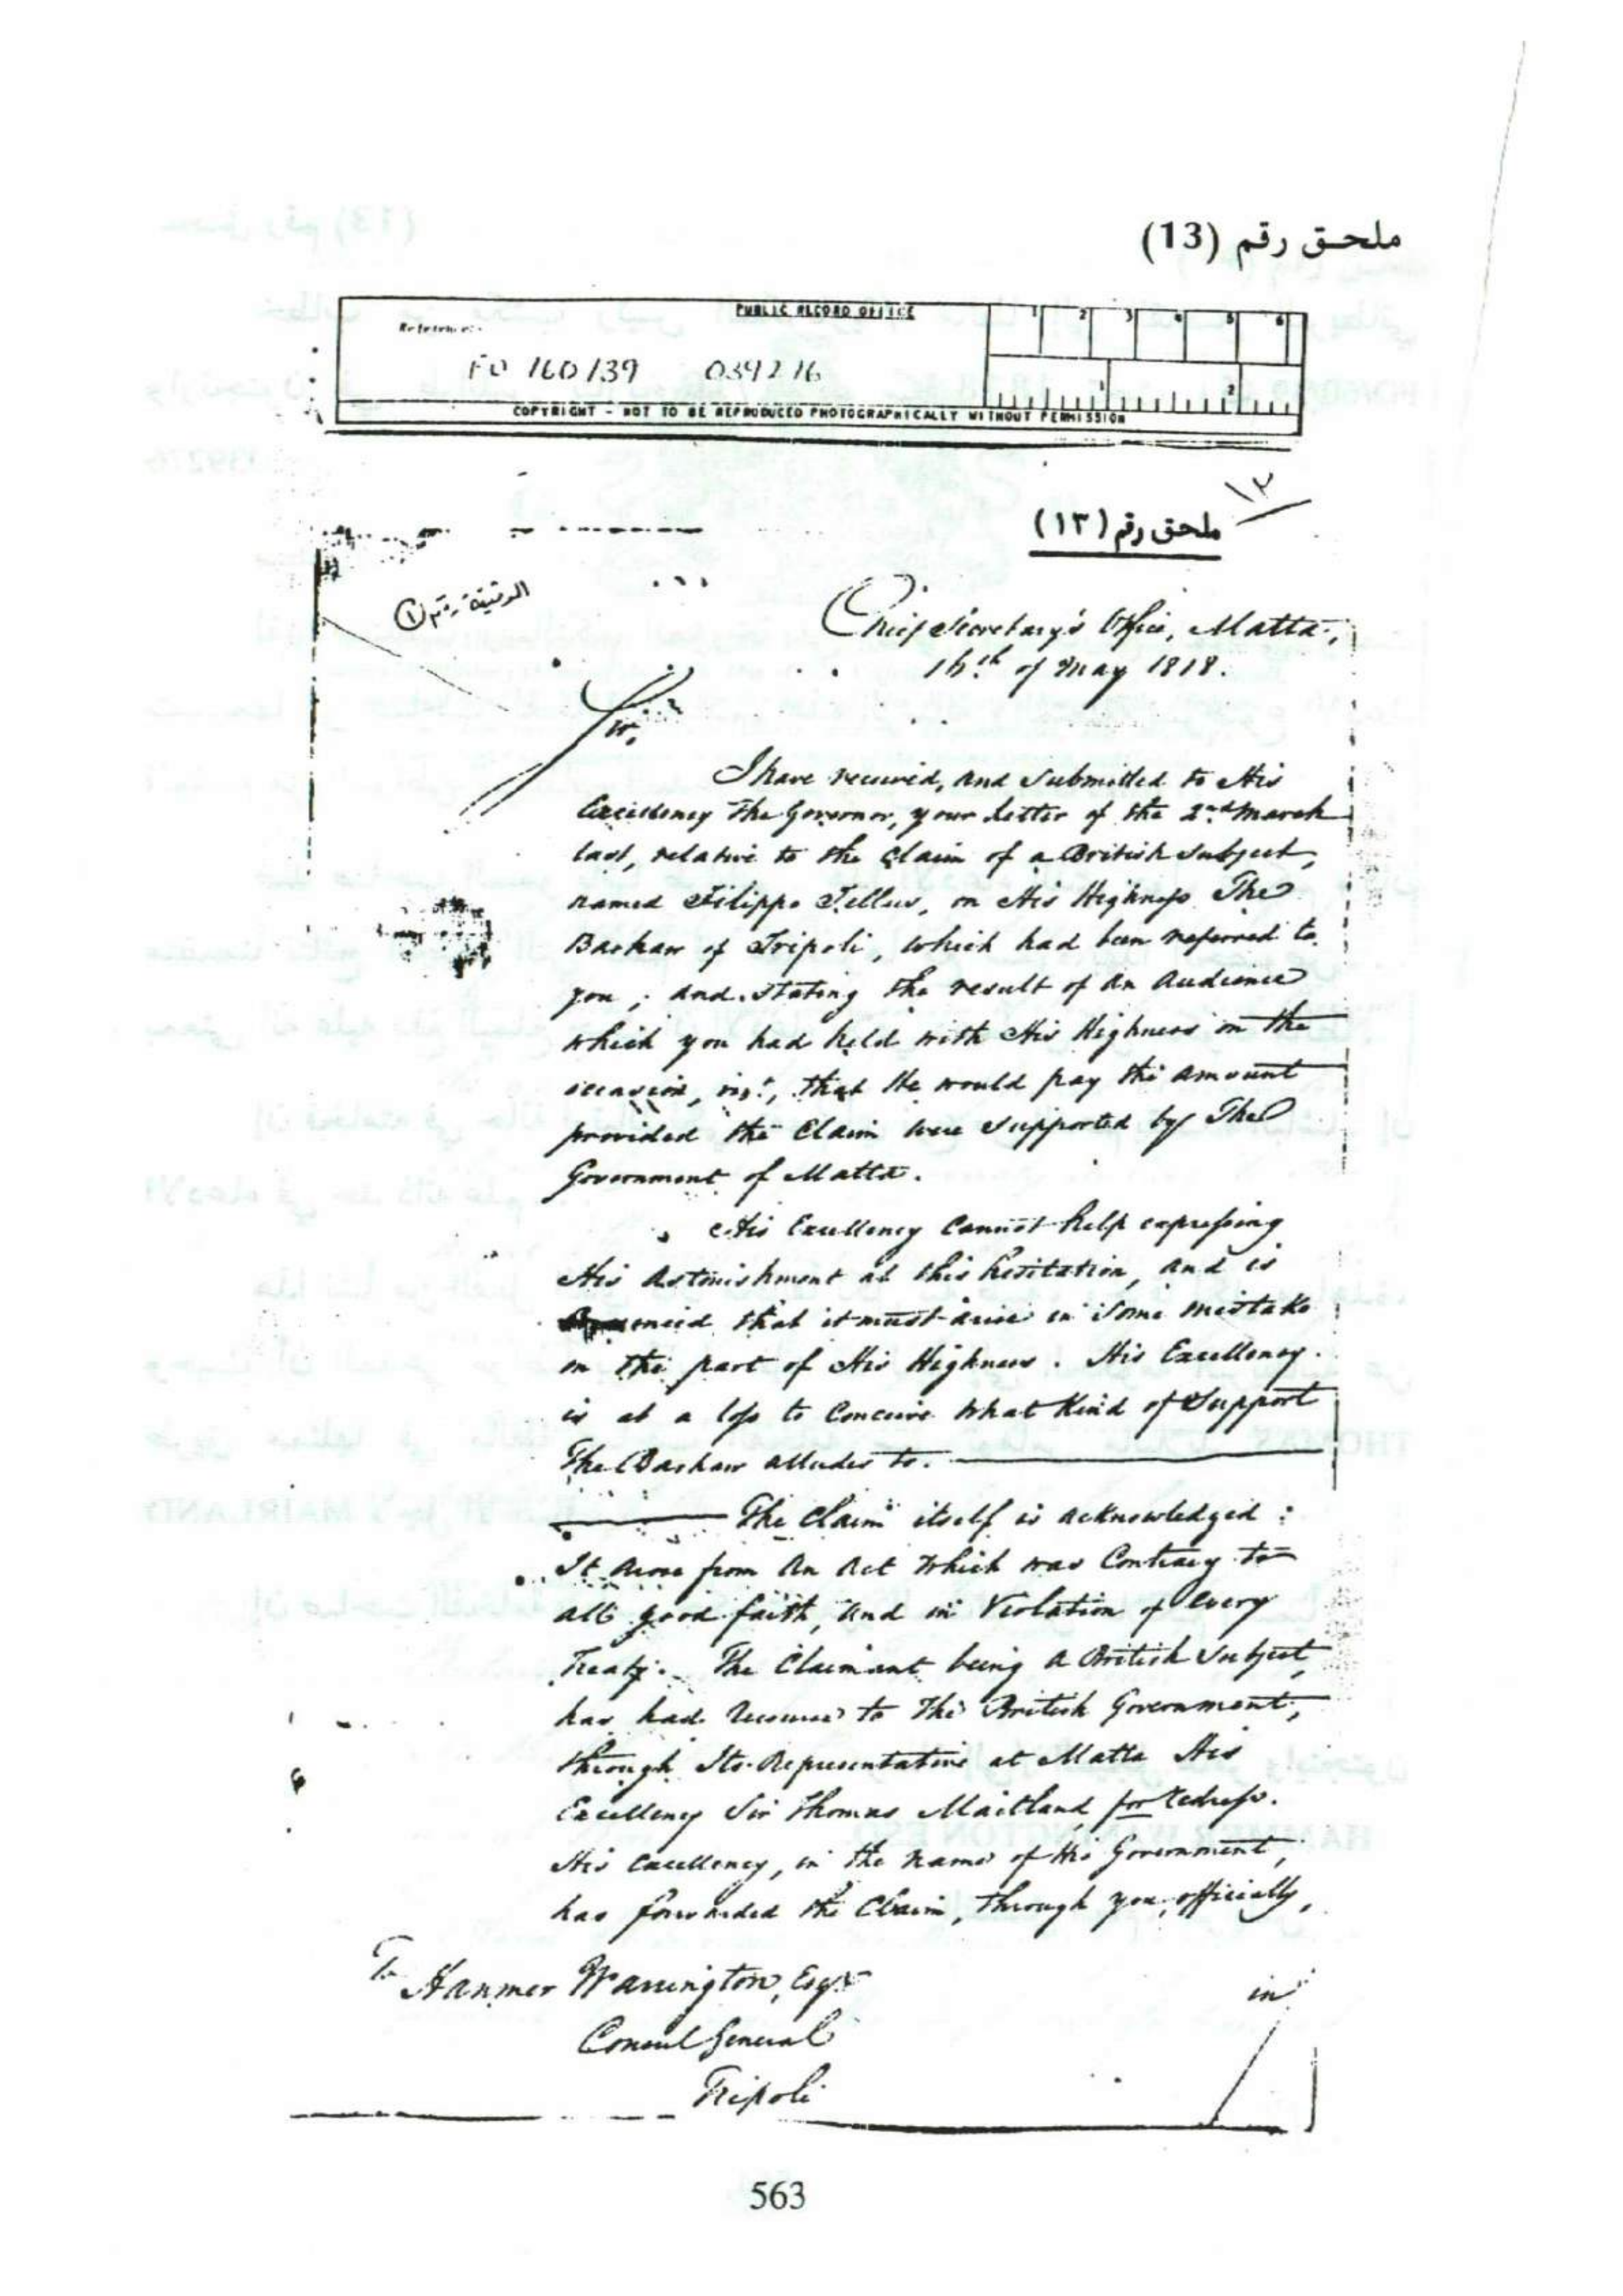 ملحق رقم (13)
PUBLIC RECORD OFFICE
1 2 3 4 5 6
Reference:-
FO 160/39 039276
1 2
COPYRIGHT - NOT TO BE REPRODUCED PHOTOGRAPHICALLY WITHOUT PERMISSION
١٣
ملحق رقم (١٣)
الوثيقة رقم ①
Chief Secretary's Office, Malta,
16th of May 1818.
Sir,
I have received, and submitted to His
Excellency The Governor, your Letter of the 2nd March
last, relative to the Claim of a British Subject,
named Filippo Tellus, on His Highness The
Bashaw of Tripoli, which had been referred to
you; and stating the result of an Audience
which you had held with His Highness on the
occasion, vizt, that He would pay the amount
provided the Claim were Supported by The
Government of Malta.
His Excellency Cannot help expressing
His Astonishment at this hesitation, and is
that it must arise in some mistake
on the part of His Highness. His Excellency
is at a loss to Conceive what Kind of Support
The Bashaw alludes to.
The Claim itself is acknowledged:
It arose from An Act which was Contrary to
all good faith, and in Violation of every
Treaty. The Claimant being a British Subject,
has had recourse to The British Government,
through Its Representative at Malta His
Excellency Sir Thomas Maitland for redress.
His Excellency, in the name of His Government,
has forwarded the Claim, through you, officially,
in
To Hanmer Warrington, Esqr
Consul General
Tripoli
563